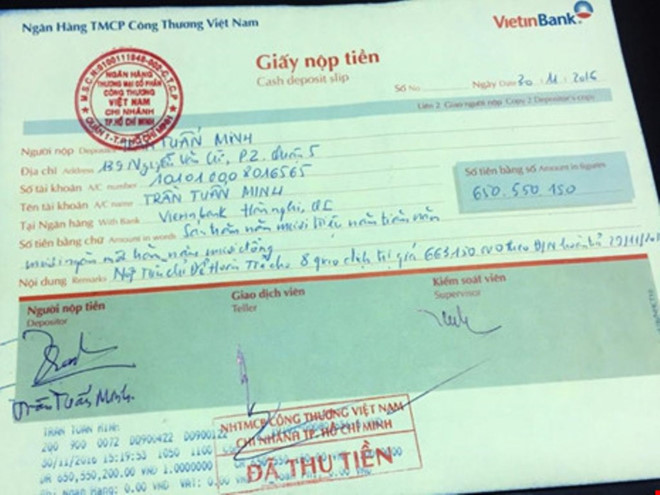 Ngân Hàng TMCP Công Thương Việt Nam
VietinBank
Giấy nộp tiền
Cash deposit slip
Số No
Ngày Date 30.11.2016
Liên 2 Giao người nộp Copy 2 Depositor's copy
M.S.C.N:0100111948-002-C.T.C.P
NGÂN HÀNG
THƯƠNG MẠI CỔ PHẦN
CÔNG THƯƠNG
VIỆT NAM
CHI NHÁNH
TP.HỒ CHÍ MINH
QUẬN 1-T.P HỒ CHÍ MINH
Người nộp Depositor TUẤN MINH
Địa chỉ Address 139 Nguyễn Văn Cừ, P.2. Quận 5
Số tài khoản A/C number 101010008016565
Tên tài khoản A/C name TRẦN TUẤN MINH
Tại Ngân hàng With Bank Vietinbank Hàm nghi, Q1
Số tiền bằng số Amount in figures
650.550.150
Số tiền bằng chữ Amount in words Sáu trăm năm mươi triệu năm trăm năm
mươi ngàn một trăm năm mươi đồng
Nội dung Remarks Nộp Tiền chi Để Hoàn Trả cho 8 giao dịch trị giá 663.150.000 theo
Người nộp tiền
Depositor
Giao dịch viên
Teller
Kiểm soát viên
Supervisor
Trần Tuấn Minh
TRAN TUAN MINH
200 900 0072 00906422 00900122
30/11/2016 15:19:53 1050 1100
DR 650,550,200.00 VND 1.0000000
Phi Ngan Hang: 0.00 VND VAT: 0.00 VND
NHTMCP CÔNG THƯƠNG VIỆT NAM
CHI NHÁNH TP. HỒ CHÍ MINH
ĐÃ THU TIỀN